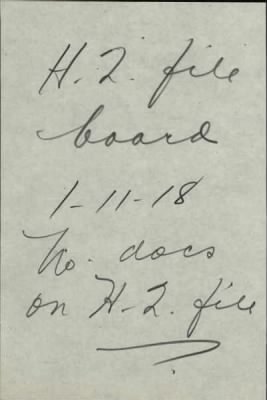 H. Q. file
board
1-11-18
No. docs
on H-Q. file